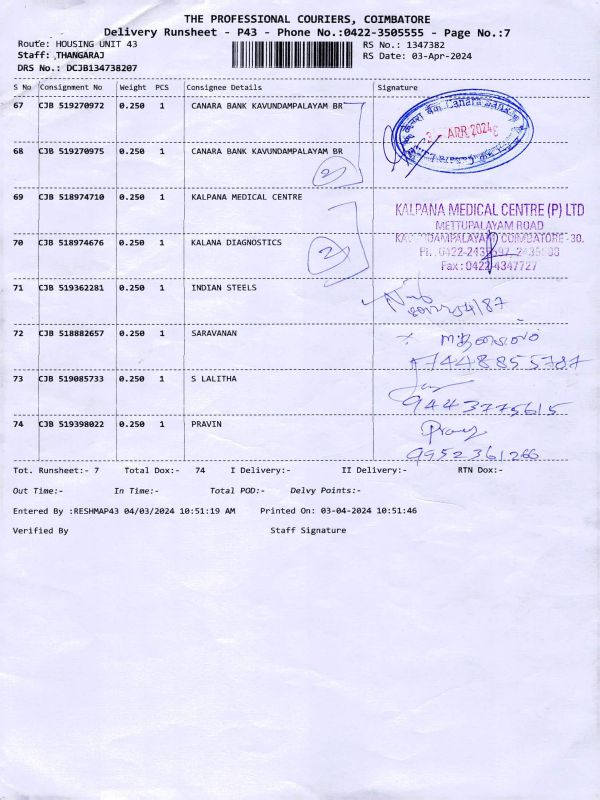 THE PROFESSIONAL COURIERS, COIMBATORE
Delivery Runsheet - P43 - Phone No.:0422-3505555 - Page No.:7
Route: HOUSING UNIT 43 RS No.: 1347382
Staff: THANGARAJ RS Date: 03-Apr-2024
DRS No.: DCJB134738207
S No Consignment No Weight PCS Consignee Details Signature
67 CJB 519270972 0.250 1 CANARA BANK KAVUNDAMPALAYAM BR
Canara Bank
APR 2024
68 CJB 519270975 0.250 1 CANARA BANK KAVUNDAMPALAYAM BR
2
69 CJB 518974710 0.250 1 KALPANA MEDICAL CENTRE
KALPANA MEDICAL CENTRE (P) LTD
METTUPALAYAM ROAD
70 CJB 518974676 0.250 1 KALANA DIAGNOSTICS
COIMBATORE - 30.
2
Fax : 0422-4347727
71 CJB 519362281 0.250 1 INDIAN STEELS
72 CJB 518882657 0.250 1 SARAVANAN
7448855787
73 CJB 519085733 0.250 1 S LALITHA
9443775615
74 CJB 519398022 0.250 1 PRAVIN
9952361266
Tot. Runsheet:- 7 Total Dox:- 74 I Delivery:- II Delivery:- RTN Dox:-
Out Time:- In Time:- Total POD:- Delvy Points:-
Entered By :RESHMAP43 04/03/2024 10:51:19 AM Printed On: 03-04-2024 10:51:46
Verified By Staff Signature